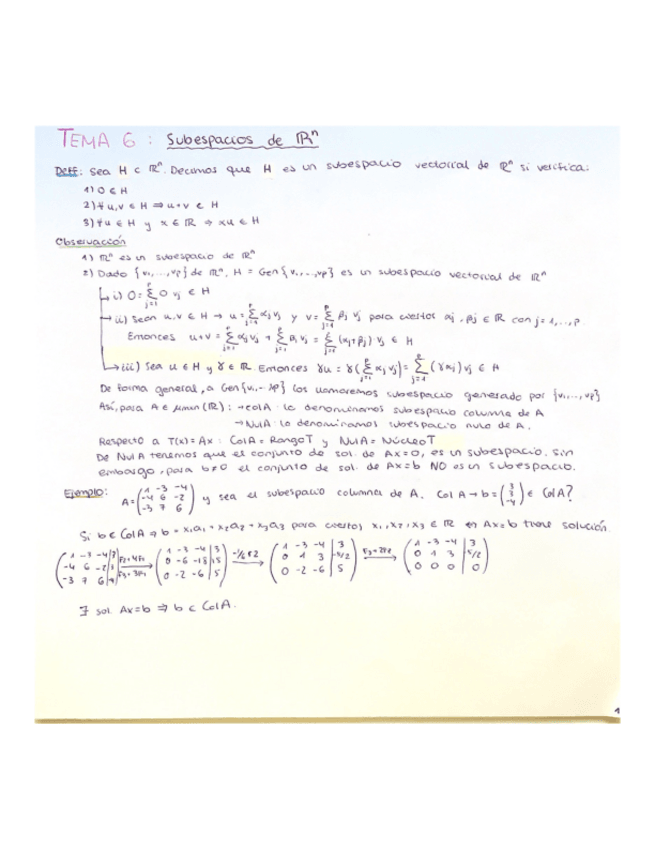 TEMA 6 : Subespacios de ℝⁿ
Deff: Sea H ⊂ ℝⁿ. Decimos que H es un subespacio vectorial de ℝⁿ si verifica:
1) 0 ∈ H
2) ∀ u,v ∈ H ⇒ u+v ∈ H
3) ∀ u ∈ H y x ∈ ℝ ⇒ xu ∈ H
Observación
1) ℝⁿ es un subespacio de ℝⁿ
2) Dado {v₁,...,vp} de ℝⁿ, H = Gen{v₁,...,vp} es un subespacio vectorial de ℝⁿ
↳ i) 0 = Σ_{j=1}^{p} 0 vj ∈ H
→ ii) Sean u,v ∈ H → u = Σ_{j=1}^{p} αj vj y v = Σ_{j=1}^{p} βj vj para ciertos αj, βj ∈ ℝ con j = 1,...,p.
Entonces u+v = Σ_{j=1}^{p} αj vj + Σ_{j=1}^{p} βj vj = Σ_{j=1}^{p} (αj+βj) vj ∈ H
↳ iii) Sea u ∈ H y γ ∈ ℝ. Entonces γu = γ(Σ_{j=1}^{p} αj vj) = Σ_{j=1}^{p} (γαj) vj ∈ H
De forma general, a Gen{v₁...vp} los llamaremos subespacio generado por {v₁,...,vp}
Así, para A ∈ mn(ℝ): → colA lo denominamos subespacio columna de A
→ NulA lo denominamos subespacio nulo de A.
Respecto a T(x) = Ax : ColA = RangoT y NulA = NúcleoT
De NulA tenemos que el conjunto de sol. de Ax=0, es un subespacio. Sin
embargo, para b≠0 el conjunto de sol. de Ax=b NO es un subespacio.
Ejemplo: A = (1 -3 -4; -4 6 -2; -3 7 6) y sea el subespacio columna de A. Col A → b = (3; 3; -4) ∈ ColA?
Si b ∈ ColA ⇒ b = x₁a₁ + x₂a₂ + x₃a₃ para ciertos x₁, x₂, x₃ ∈ ℝ ⇔ Ax=b tiene solución.
(1 -3 -4 | 3; -4 6 -2 | 3; -3 7 6 | -4) F2+4F1 F3+3F1 → (1 -3 -4 | 3; 0 -6 -18 | 15; 0 -2 -6 | 5) -1/6 F2 → (1 -3 -4 | 3; 0 1 3 | -5/2; 0 -2 -6 | 5) F3+2F2 → (1 -3 -4 | 3; 0 1 3 | 5/2; 0 0 0 | 0)
∃ sol. Ax=b ⇒ b ∈ ColA.
1